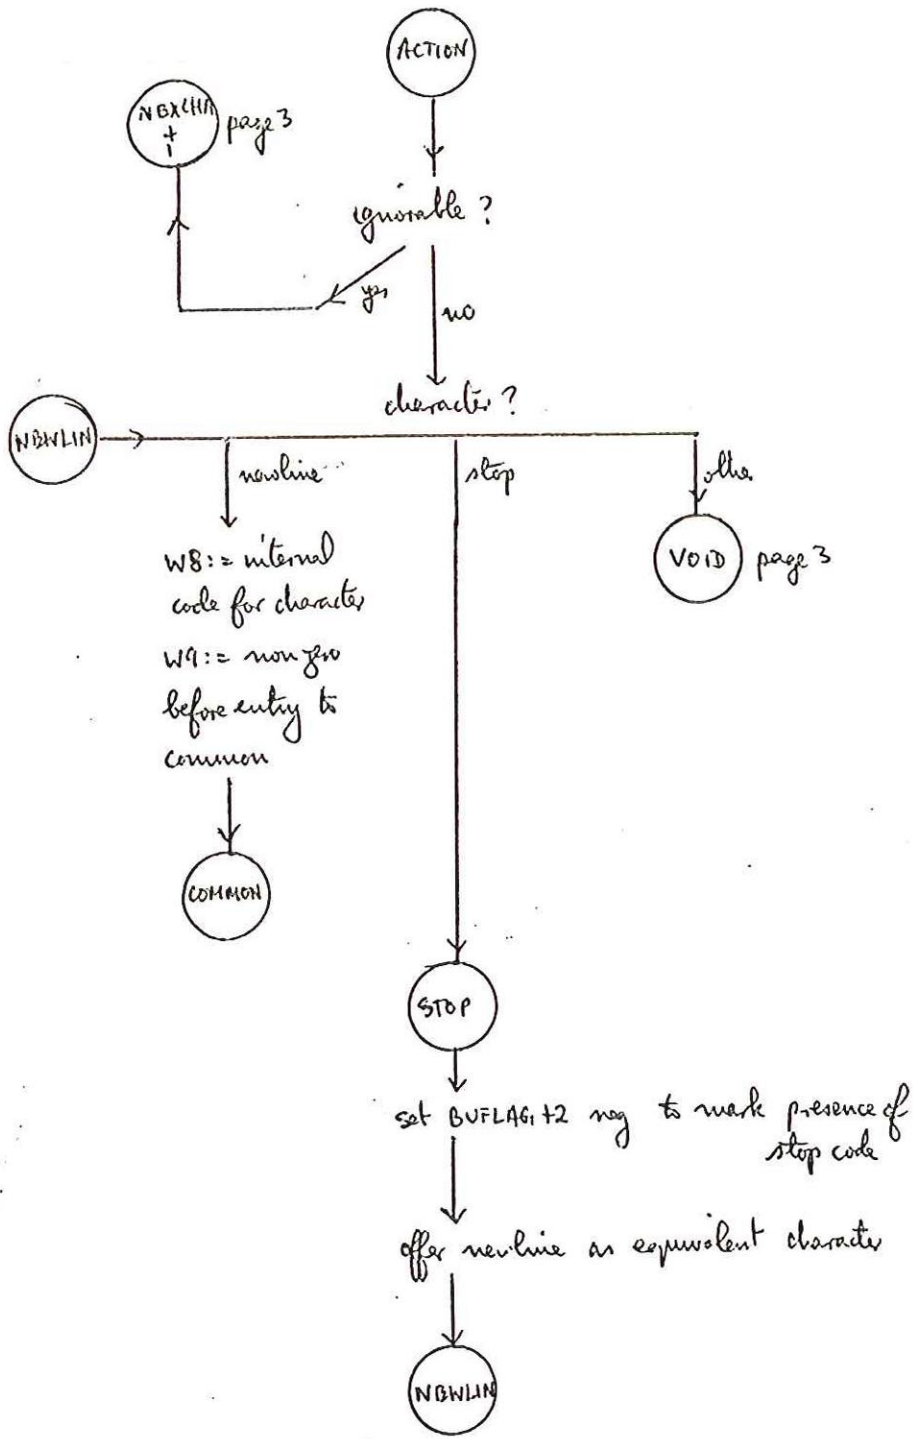 ACTION
NBXCHA
+
1
page 3
ignorable ?
yes
no
character ?
NBWLIN
newline
stop
other
W8:= internal
code for character
W9:= non zero
before entry to
common
VOID
page 3
COMMON
STOP
set BUFLAG+2 neg to mark presence of
stop code
offer newline as equivalent character
NBWLIN